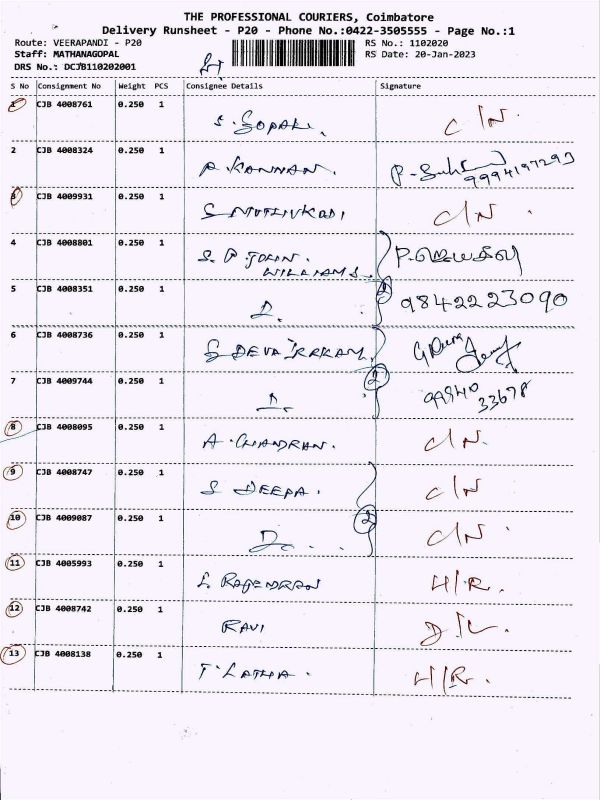 THE PROFESSIONAL COURIERS, Coimbatore
Delivery Runsheet - P20 - Phone No.:0422-3505555 - Page No.:1
Route: VEERAPANDI - P20 RS No.: 1102020
Staff: MATHANAGOPAL RS Date: 20-Jan-2023
DRS No.: DCJB110202001
S No Consignment No Weight PCS Consignee Details Signature
1 CJB 4008761 0.250 1 S. GOPAL. C/N.
2 CJB 4008324 0.250 1 P. KANNAN. P.
9994197293
3 CJB 4009931 0.250 1 C/N.
4 CJB 4008801 0.250 1 S. P. JOHN. P.ஜெயசீலி
WILLIAMS.
5 CJB 4008351 0.250 1 D. 2 9842223090
6 CJB 4008736 0.250 1 G DEVA
7 CJB 4009744 0.250 1 D. 2 99940
33678
8 CJB 4008095 0.250 1 A. CHANDRAN. C/N.
9 CJB 4008747 0.250 1 S DEEPA. C/N
10 CJB 4009087 0.250 1 D. 2 C/N.
11 CJB 4005993 0.250 1 L RAJENDRAN H/R.
12 CJB 4008742 0.250 1 RAVI D/L.
13 CJB 4008138 0.250 1 T. LATHA. H/R.